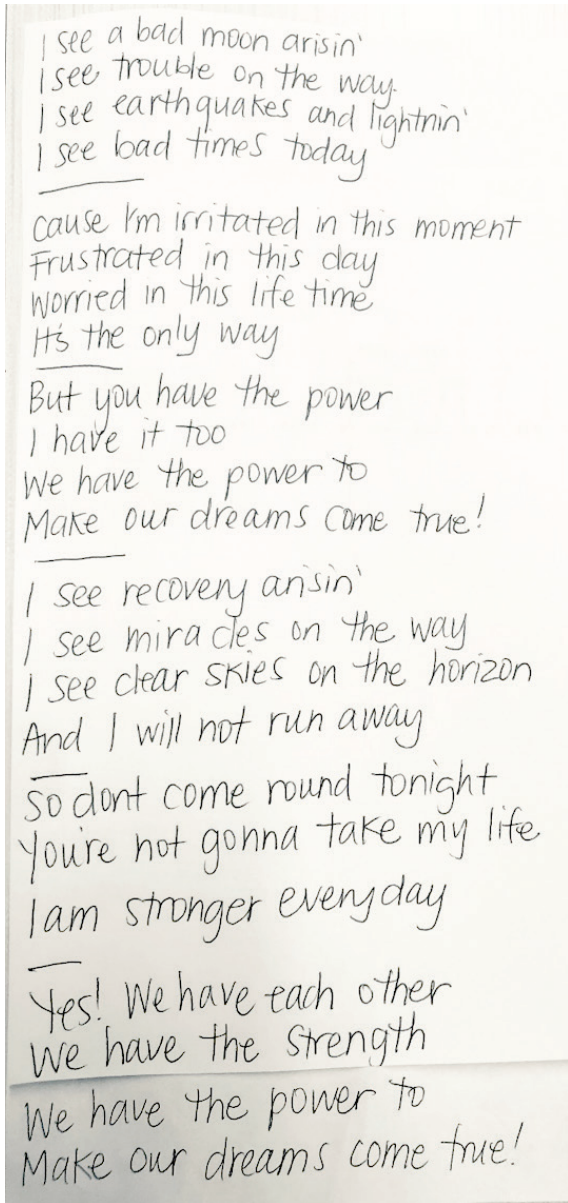 I see a bad moon arisin'
I see trouble on the way.
I see earthquakes and lightnin'
I see bad times today
cause I'm irritated in this moment
Frustrated in this day
Worried in this life time
It's the only way
But you have the power
I have it too
We have the power to
Make our dreams come true!
I see recovery arisin'
I see miracles on the way
I see clear skies on the horizon
And I will not run away
So dont come round tonight
You're not gonna take my life
I am stronger everyday
Yes! We have each other
We have the strength
We have the power to
Make our dreams come true!